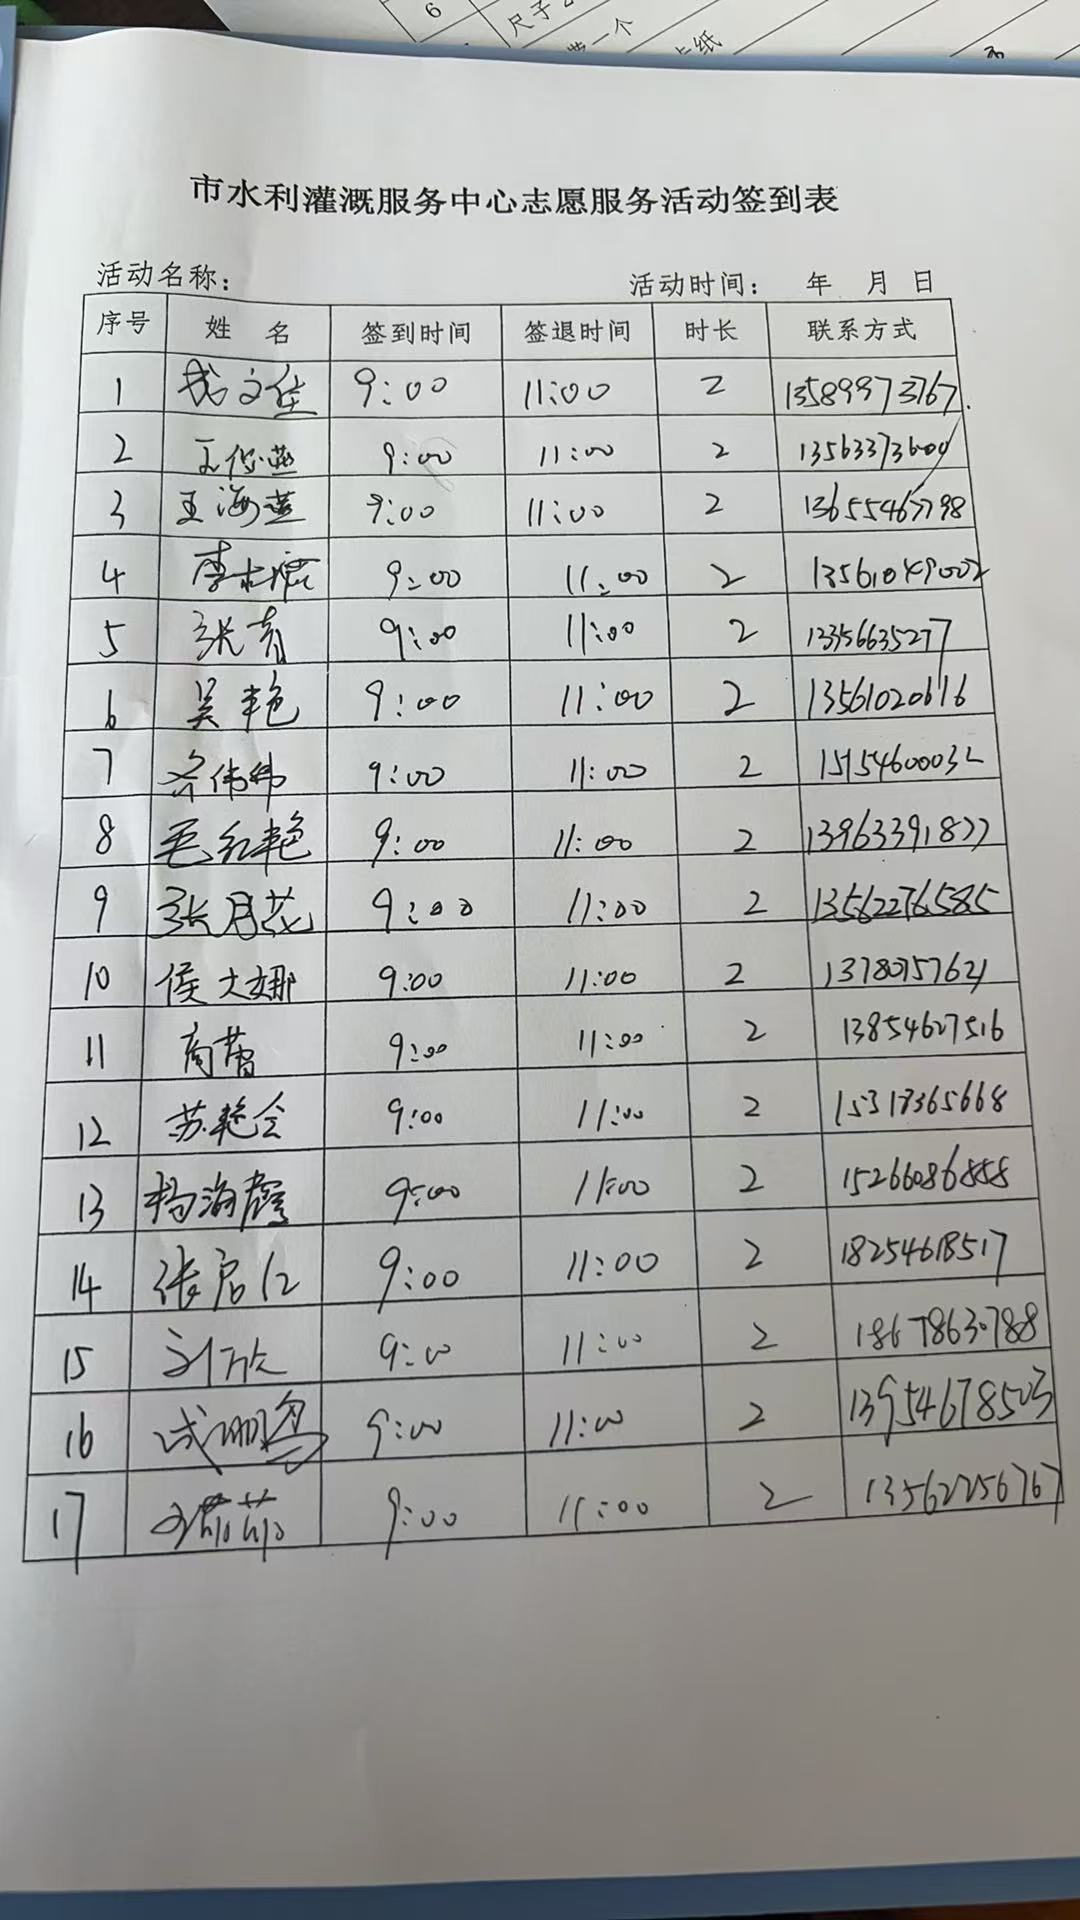 6 尺子
一个
卡纸
市水利灌溉服务中心志愿服务活动签到表
活动名称: 活动时间: 年 月 日
序号 姓 名 签到时间 签退时间 时长 联系方式
1 9:00 11:00 2 13589973767
2 9:00 11:00 2 13563373600
3 王海燕 9:00 11:00 2 13655467798
4 9:00 11:00 2 13561049002
5 张青 9:00 11:00 2 13356635277
6 吴艳 9:00 11:00 2 13561020616
7 9:00 11:00 2 15154600032
8 毛红艳 9:00 11:00 2 13963391877
9 张月花 9:00 11:00 2 13562276585
10 侯大娜 9:00 11:00 2 13780757621
11 商蕾 9:00 11:00 2 13854627516
12 苏艳会 9:00 11:00 2 15317365668
13 杨海霞 9:00 11:00 2 15266086888
14 张启仁 9:00 11:00 2 18254618517
15 刘欣 9:00 11:00 2 18678630788
16 9:00 11:00 2 13954678503
17 9:00 11:00 2 13562256767